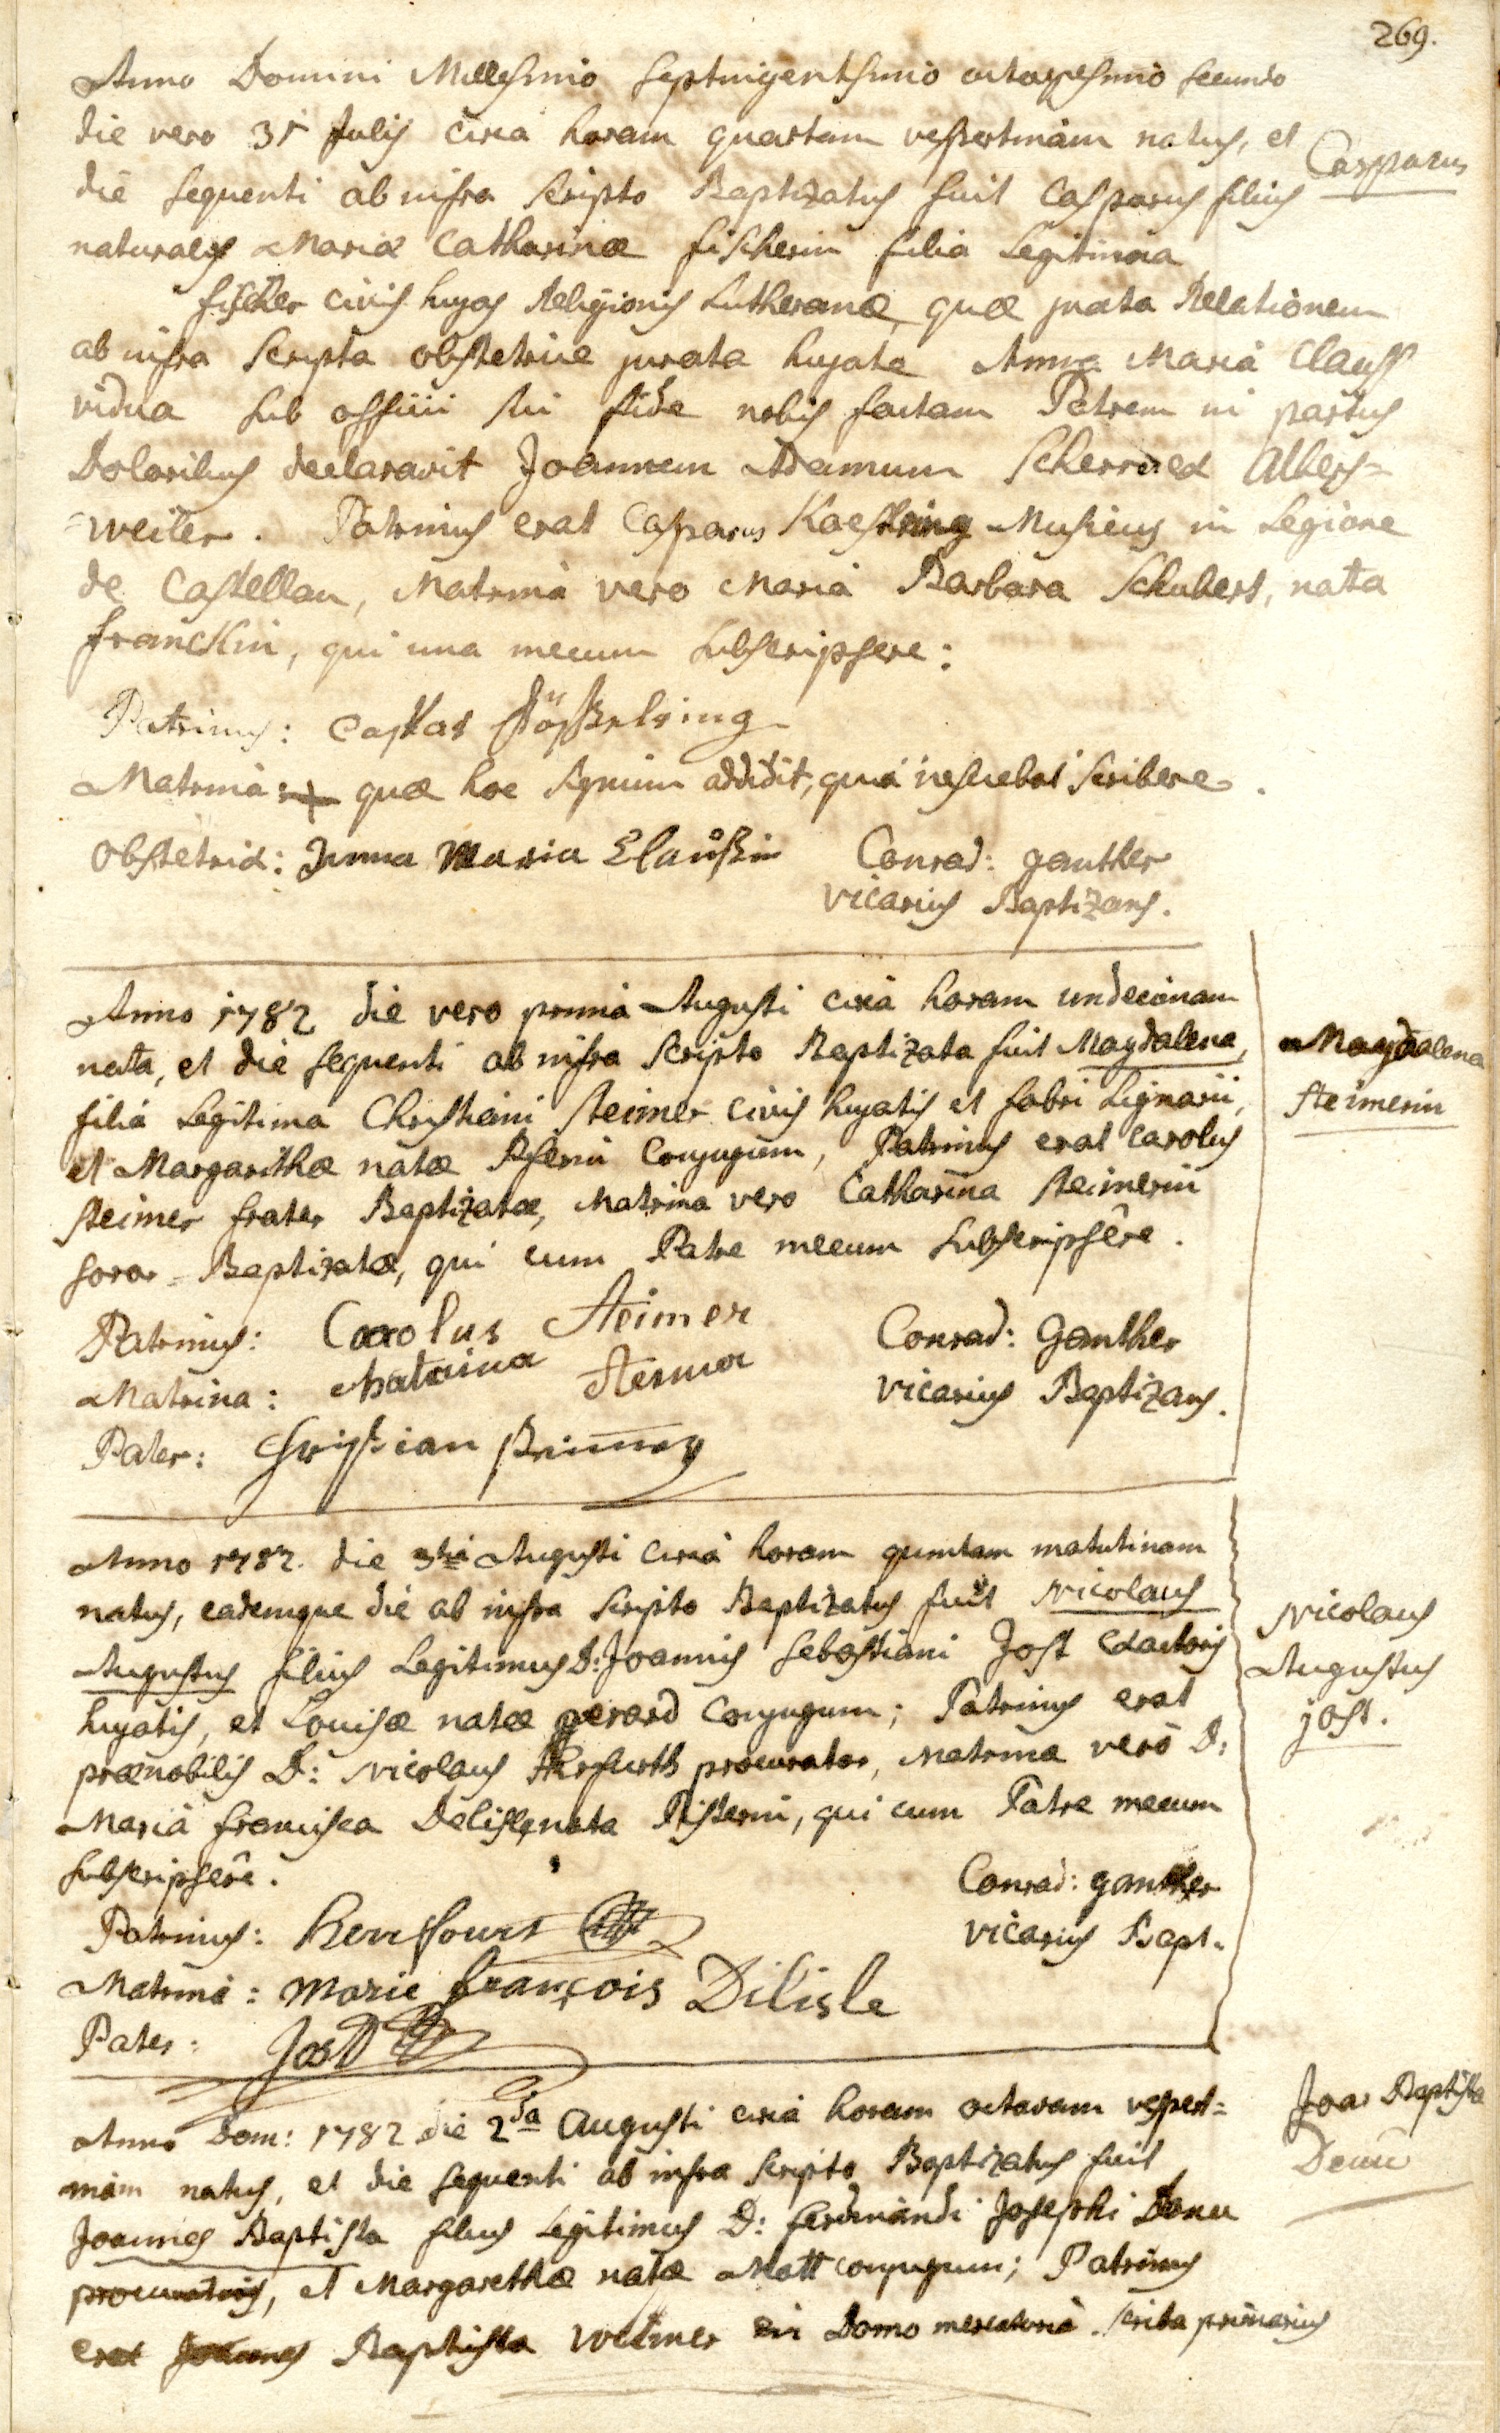 269.
Anno Domini Millesimo septuigentesimo octogesimo secundo
die vero 31 Julij circa horam quartam vespertinam natus, et
Casparus
die sequenti ab infra scripto Baptizatus fuit Casparus filius
naturalis Maria Catharinæ fischerin filia Legitima
fischer civis hujas Religionis Lutheranæ, quæ juxta Relationem
ab infra scripta obstetrice jurata hujate Anna Maria Clauss
vidua sub officii sui fide nobis factam Patrem in partus
Doloribus declaravit Joannem Adamum Scherr ex Albers=
=weiler. Patrinus erat Casparus Kaestring Musicus in Legione
de Castellan, Matrina vero Maria Barbara Schubert, nata
franckin, qui una mecum subscripsere:
Patrinus: Caspar
Matrina: + quæ hoc signum addidit, quia nesciebat scribere.
Obstetrix: Anna Maria Claußin Conrad: Ganther
vicarius Baptizans.
Anno 1782 die vero prima Augusti circa horam undecimam
nata, et die sequenti ab infra scripto Baptizata fuit Magdalena,
Magdalena
filia Legitima Christiani Steimer civis hujatis et fabri Lignarii,
Steimerin
et Margarithæ natæ Conjugum, Patrinus erat Carolus
Steimer frater Baptizatæ, Matrina vero Catharina Steimerin
soror Baptizatæ, qui cum Patre mecum subscripsêre.
Patrinus: Carolus Steimer Conrad: Ganther
Matrina: Chatarina vicarius Baptizans.
Pater: Christian
Anno 1782. die 3tia Augusti circa horam quintam matutinam
natus, eademque die ab infra scripto Baptizatus fuit Nicolaus
Nicolaus
Augustus filius Legitimus D: Joannis Sebastiani Jost
Augustus
hujatis, et Louisæ natæ gerard Conjugum; Patrinus erat
jost.
prænobilis D: Nicolaus Herfurth procurator, Matrina vero D:
Maria francisca Delisle nata Pisterin, qui cum Patre mecum
subscripsêre.
Conrad: ganther
Patrinus: vicarius Bapt.
Matrina: Marie françois Dilisle
Pater: Jost
Anno Dom: 1782 die 2da Augusti circa horam octavam vespert=
Joa: Baptista
inam natus, et die sequenti ab infra scripto Baptizatus fuit
Joannes Baptista filius Legitimus D: Ferdinandi Josephi
procuratoris, et Margarethæ natæ Mott conjugum; Patrinus
erat Joannes Baptista Welmer in Domo mercatoria scriba primarius